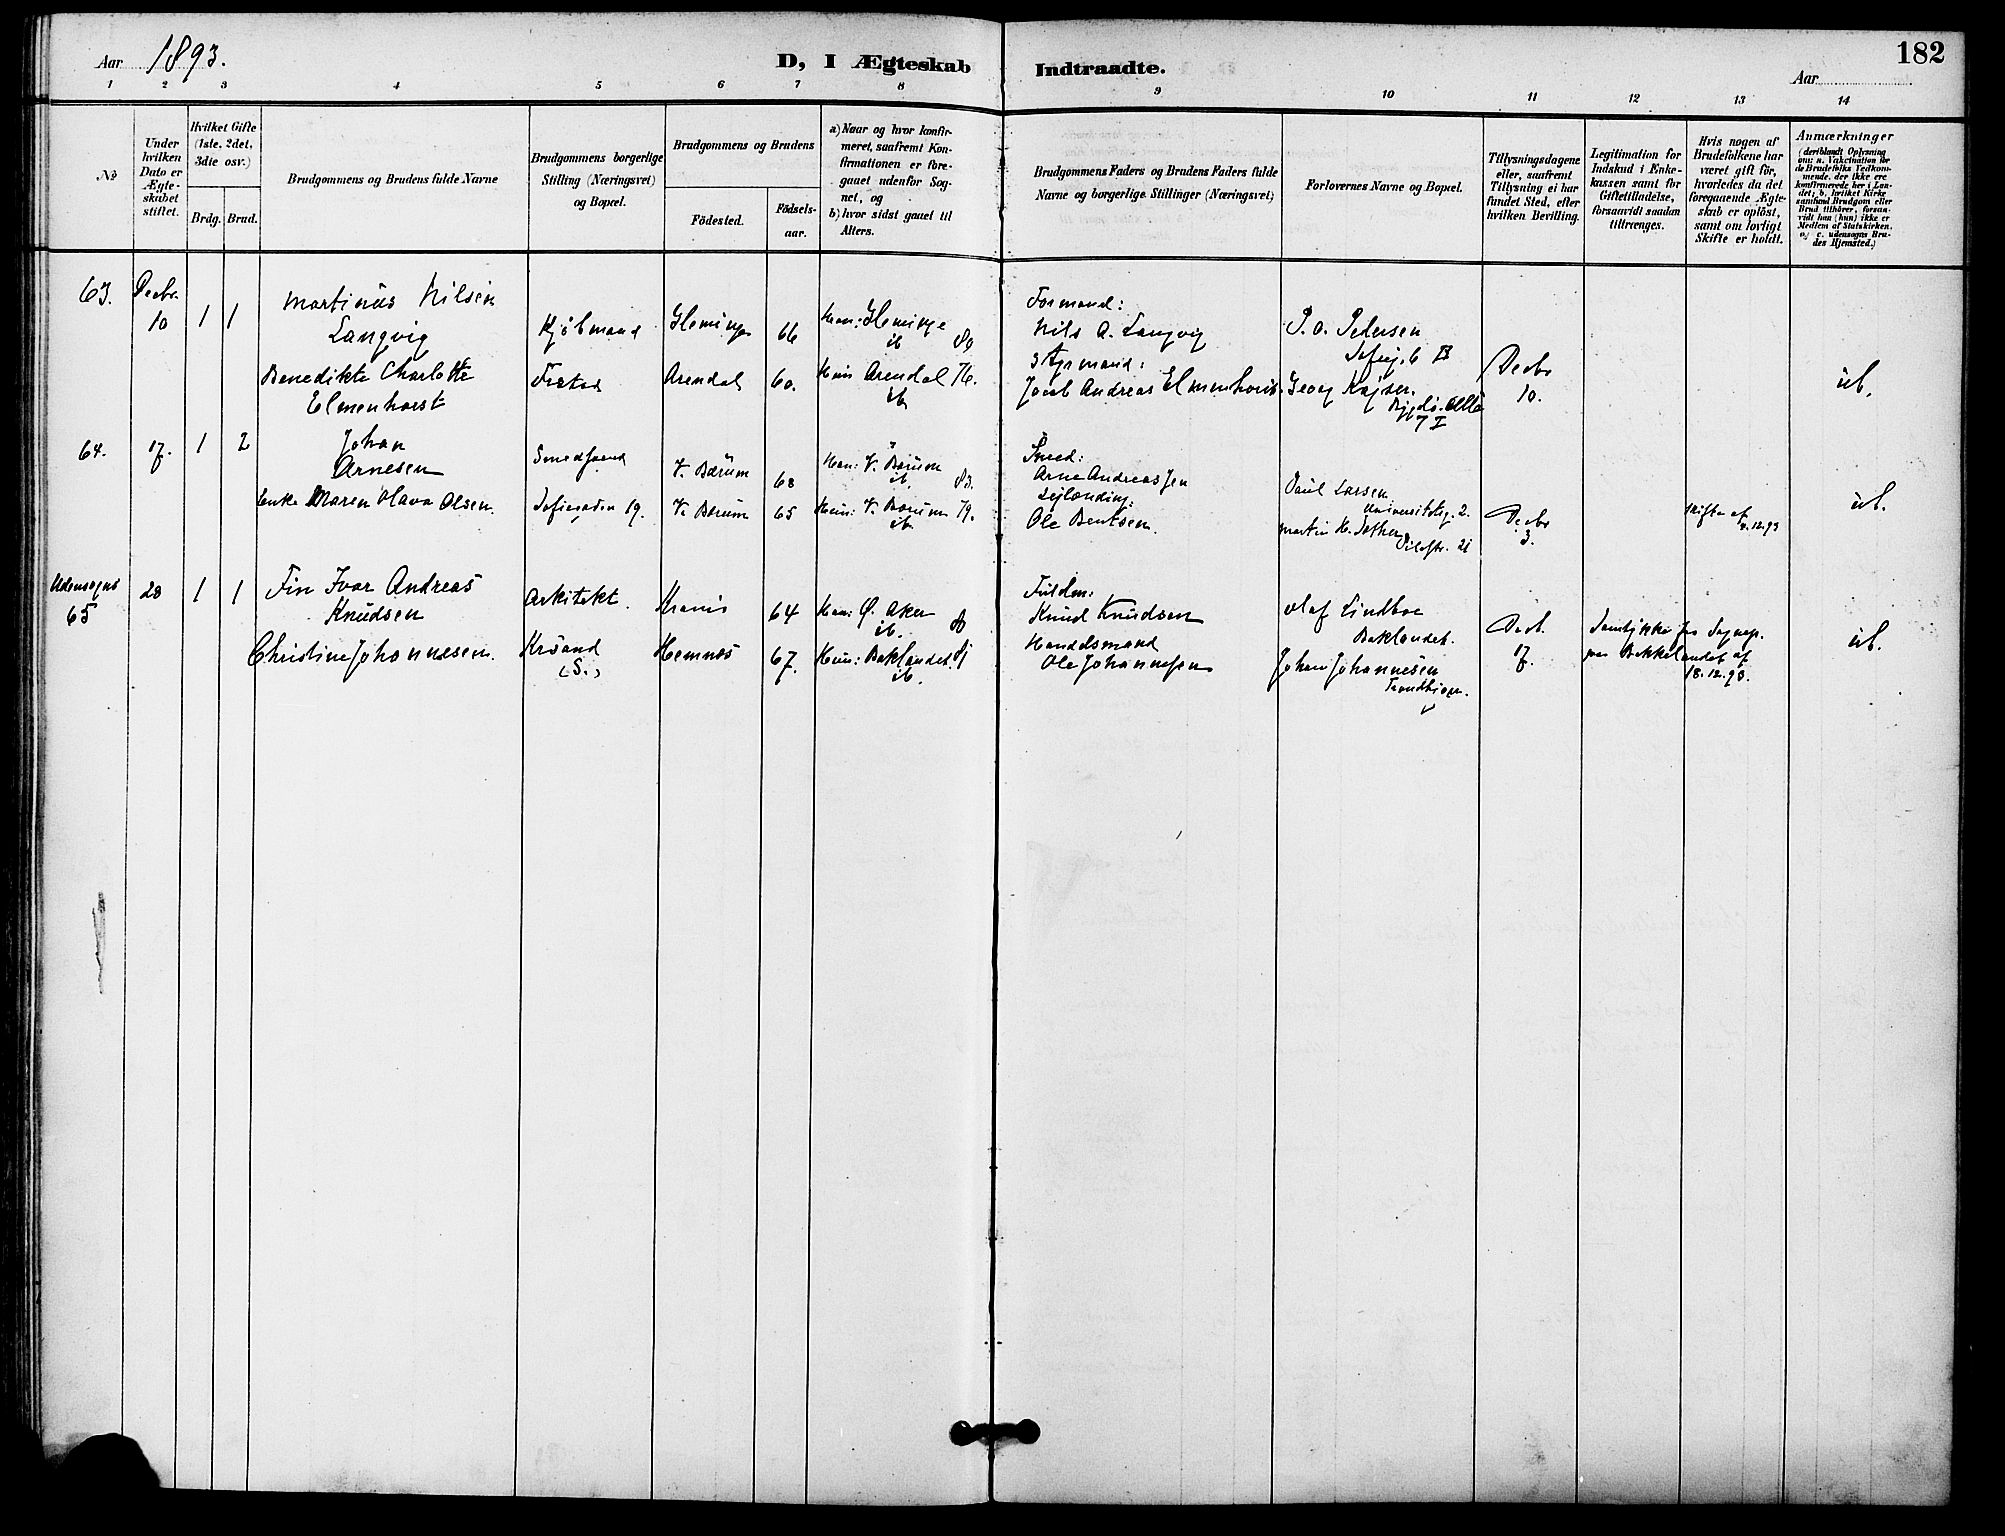 182
Aar 1893.
D, I Ægteskab Indtraadte.
Aar
1 2 3 4 5 6 7 8 9 10 11 12 13 14
No
Under hvilken Dato er Ægteskabet stiftet.
Hvilket Gifte (1ste, 2det, 3die osv.)
Brdg. Brud.
Brudgommens og Brudens fulde Navne
Brudgommens borgerlige Stilling (Næringsvei) og Bopæl.
Brudgommens og Brudens
Fødested.
Fødselsaar.
a) Naar og hvor konfirmeret, saafremt Konfirmationen er foregaaet udenfor Sognet, og
b) hvor sidst gaaet til Alters.
Brudgommens Faders og Brudens Faders fulde Navne og borgerlige Stillinger (Næringsvei)
Forlovernes Navne og Bopæl.
Tillysningsdagene eller, saafremt Tillysning ei har fundet Sted, efter hvilken Bevilling.
Legitimation for Indskud i Enkekassen samt for Giftetilladelse, forsaavidt saadan tiltrænges.
Hvis nogen af Brudefolkene har været gift før, hvorledes da det foregaaende Ægteskab er opløst, samt om lovligt Skifte er holdt.
Anmærkninger
(deriblandt Oplysning om: a. Vakcination for de Brudefolks Vedkommende, der ikke ere konfirmerede her i Landet; b. hvilket Kirkesamfund Brudgom eller Brud tilhører, forsaavidt han (hun) ikke er Medlem af Statskirken, og c. udensogns Brudes Hjemsted.)
63. Decbr. 10 1 1
Martinus Nilsen
Langvig
Kjøbmand
66
80
Formand:
Nils A. Langvig
P. O. Pedersen
Benedikte Charlotte
Elmenhorst
Arendal 60.
Arendal 76.
ib
Styrmand:
Jacob Andreas Elmenhorst
Georg
7 I
Decbr
10.
ub.
64. 17. 1 2
Johan
Arnesen
Smedsvend
V. Bærum 68
V. Bærum
ib 83.
Smed:
Arne Andreassen
Paul Larsen
Universitetsg. 2.
Enke Maren Olava Olsen.
Sofiegaden 19.
V. Bærum 65
V. Bærum 79.
ib
Ole Bentsen
Martin H.
Pilestr. 21
Decbr
3.
Skifte af
12.93
ub.
Udensogns
65 28 1 1
Fin Ivar Andreas
Knudsen
Arkitekt.
64
Ø. Aker 80
ib.
Knud Knudsen
Olaf Lindboe
Baklandet.
Christine Johannesen.
Krsand
(S.)
Hemnes 67.
Baklandet.
ib.
Handelsmand
Ole Johannesen
Johan Johannesen
Trondhjem.
Decb.
17.
Samtykke fra Sognep.
paa Bakkelandet af
18.12.93.
ub.